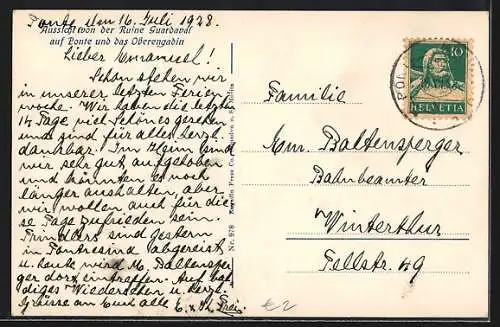 Ponte, den 16. Juli 1928.
Aussicht von der Ruine Guardaval
auf Ponte und das Oberengadin
Lieber Emanuel!
Schon stehen wir
in unserer letzten Ferien-
woche. Wir haben die letzte
14 Tage viel Schönes gesehen
und sind für alles herzl.
dankbar. Im sind
wir sehr gut aufgehoben
und könnten es noch
länger aushalten, aber
wir wollen auch für die-
se Tage zufrieden sein.
Frl. sind gestern
in Pontresina abgereist,
u. heute wird M. Baltensper-
ger dort eintreffen. Auf bal-
diges Wiedersehen u. herzl.
Grüsse an Euch alle E. u. H. Frei
Nr. 978
Engadin Press Co., Samaden u. St. Moritz
10
HELVETIA
PON
Familie
Em. Baltensperger
Bahnbeamter
Winterthur
Tellstr. 49
€2